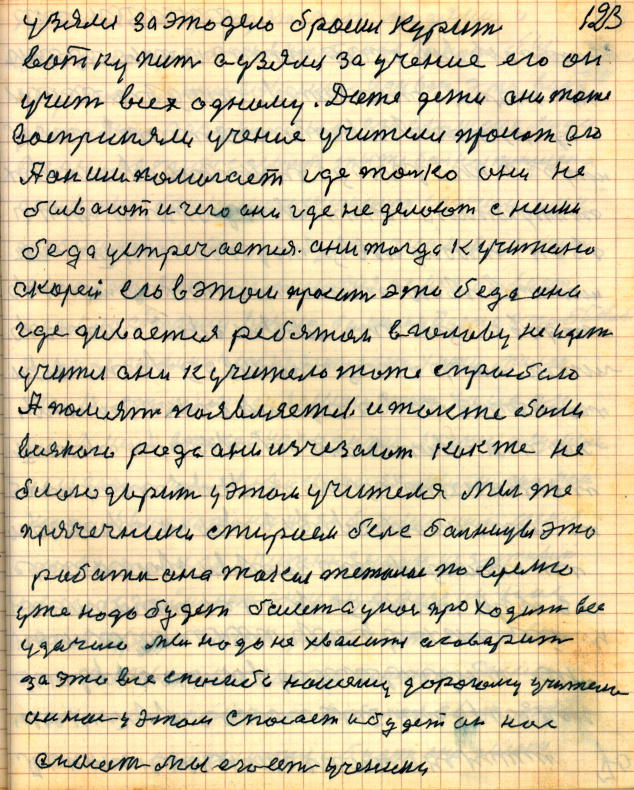 123
узяли за это дело бросил курит
вот купит а узяли за учение его он
учит всех одному. Даже дети они тоже
восприняли учение учителя просят его
А он им помогает где толко они не
бывают и чего они где не делоют с ними
беда устречается. они тогда к учителю
скорей его в этом просят это беда она
где дивается ребятам в голову не идет
учити они к учителю тоже с просбою
А помять появляется и также боли
всякого рода они изчезают как же не
благодарит у этом учителя мы же
прячечники стираем беле это
работа она такая по время
уже надо будет у нас проходит все
удачно мы надо не хвалити а говарит
за это все спасиба нашему дорогому учителю
он нас у этом спасает и будет он нас
спасат мы его ест ученики